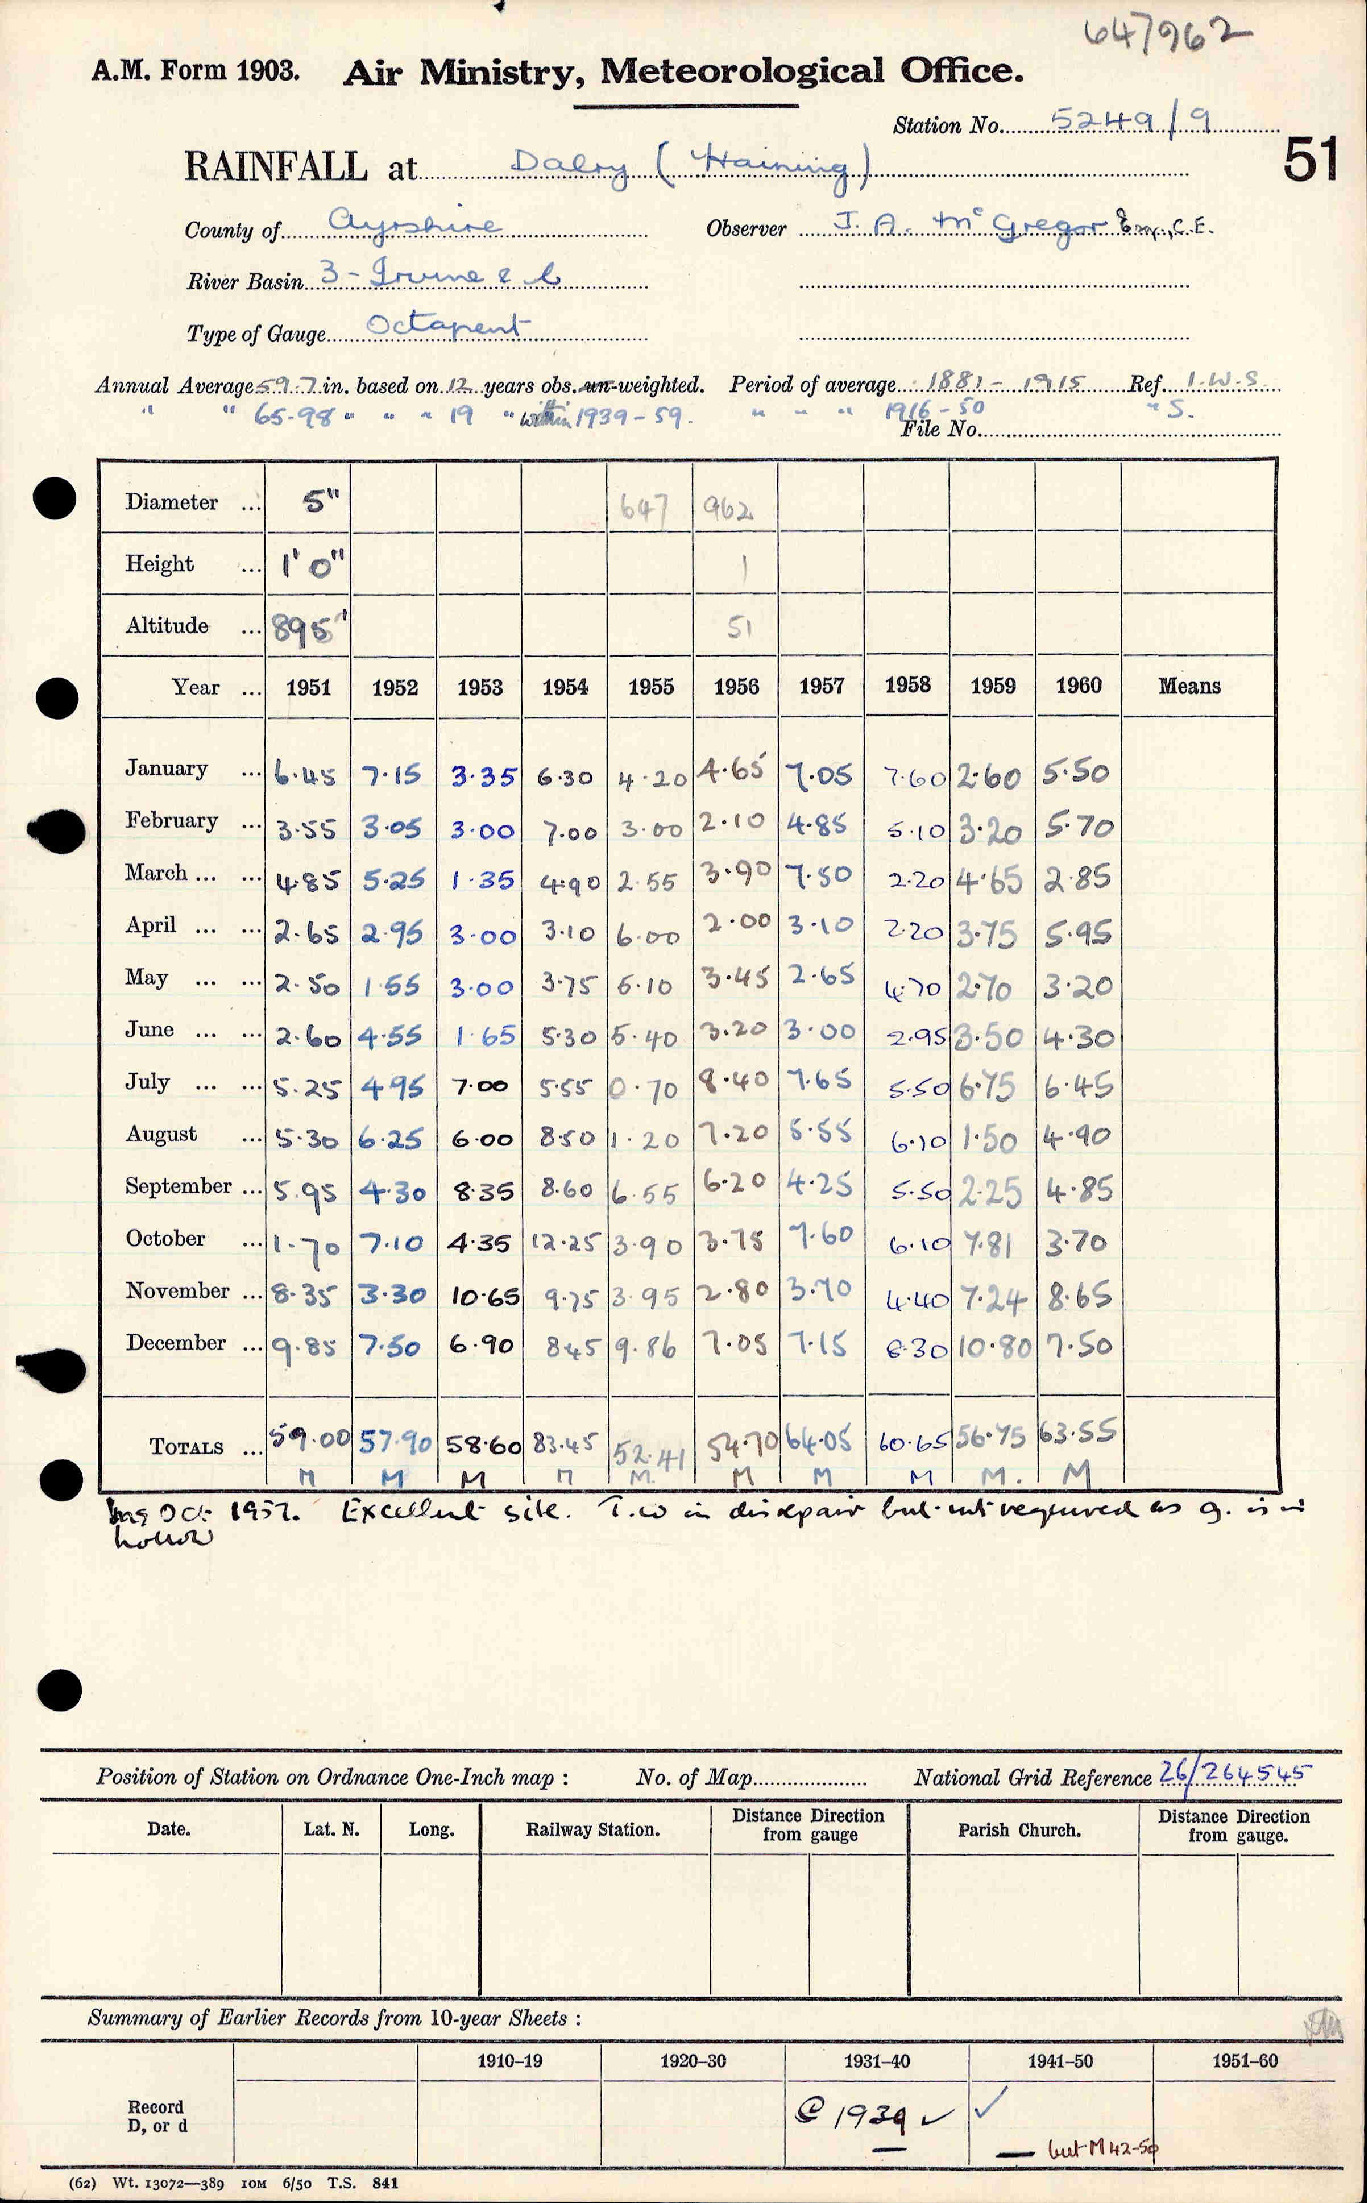 647962
A.M. Form 1903. Air Ministry, Meteorological Office.
Station No. 5249/9
51
RAINFALL at Dalry (Haining)
County of Ayrshire Observer J. A. McGregor Esq., C.E.
River Basin 3 - Irvine & C
Type of Gauge Octapent
Annual Average 59.7 in. based on 12 years obs. un-weighted. Period of average 1881 - 1915 Ref. I.W.S.
" " 65.98 " " " 19 " within 1939-59. " " " 1916-50 " S.
File No.
Diameter ... 5" 647 962
Height ... 1' 0" 1
Altitude ... 895' 51
Year ... 1951 1952 1953 1954 1955 1956 1957 1958 1959 1960 Means
January ... 6.45 7.15 3.35 6.30 4.20 4.65 7.05 7.60 2.60 5.50
February ... 3.55 3.05 3.00 7.00 3.00 2.10 4.85 5.10 3.20 5.70
March ... ... 4.85 5.25 1.35 4.90 2.55 3.90 7.50 2.20 4.65 2.85
April ... ... 2.65 2.95 3.00 3.10 6.00 2.00 3.10 2.20 3.75 5.95
May ... ... 2.50 1.55 3.00 3.75 5.10 3.45 2.65 4.70 2.70 3.20
June ... ... 2.60 4.55 1.65 5.30 5.40 3.20 3.00 2.95 3.50 4.30
July ... ... 5.25 4.95 7.00 5.55 0.70 8.40 7.65 5.50 6.75 6.45
August ... 5.30 6.25 6.00 8.50 1.20 7.20 5.55 6.10 1.50 4.90
September ... 5.95 4.30 8.35 8.60 6.55 6.20 4.25 5.50 2.25 4.85
October ... 1.70 7.10 4.35 12.25 3.90 3.75 7.60 6.10 7.81 3.70
November ... 8.35 3.30 10.65 9.75 3.95 2.80 3.70 4.40 7.24 8.65
December ... 9.85 7.50 6.90 8.45 9.86 7.05 7.15 8.30 10.80 7.50
TOTALS ... 59.00 57.90 58.60 83.45 52.41 54.70 64.05 60.65 56.75 63.55
M M M M M. M M M M. M
Ins Oct 1957. Excellent site. T.W in disrepair but not required as g. is in
hollow
Position of Station on Ordnance One-Inch map : No. of Map National Grid Reference 26/264545
Date. Lat. N. Long. Railway Station. Distance Direction from gauge Parish Church. Distance Direction from gauge.
Summary of Earlier Records from 10-year Sheets :
1910-19 1920-30 1931-40 1941-50 1951-60
Record
D, or d
@ 1939 ✓ ✓
— — but M 42-50
(62) Wt. 13072—389 10M 6/50 T.S. 841